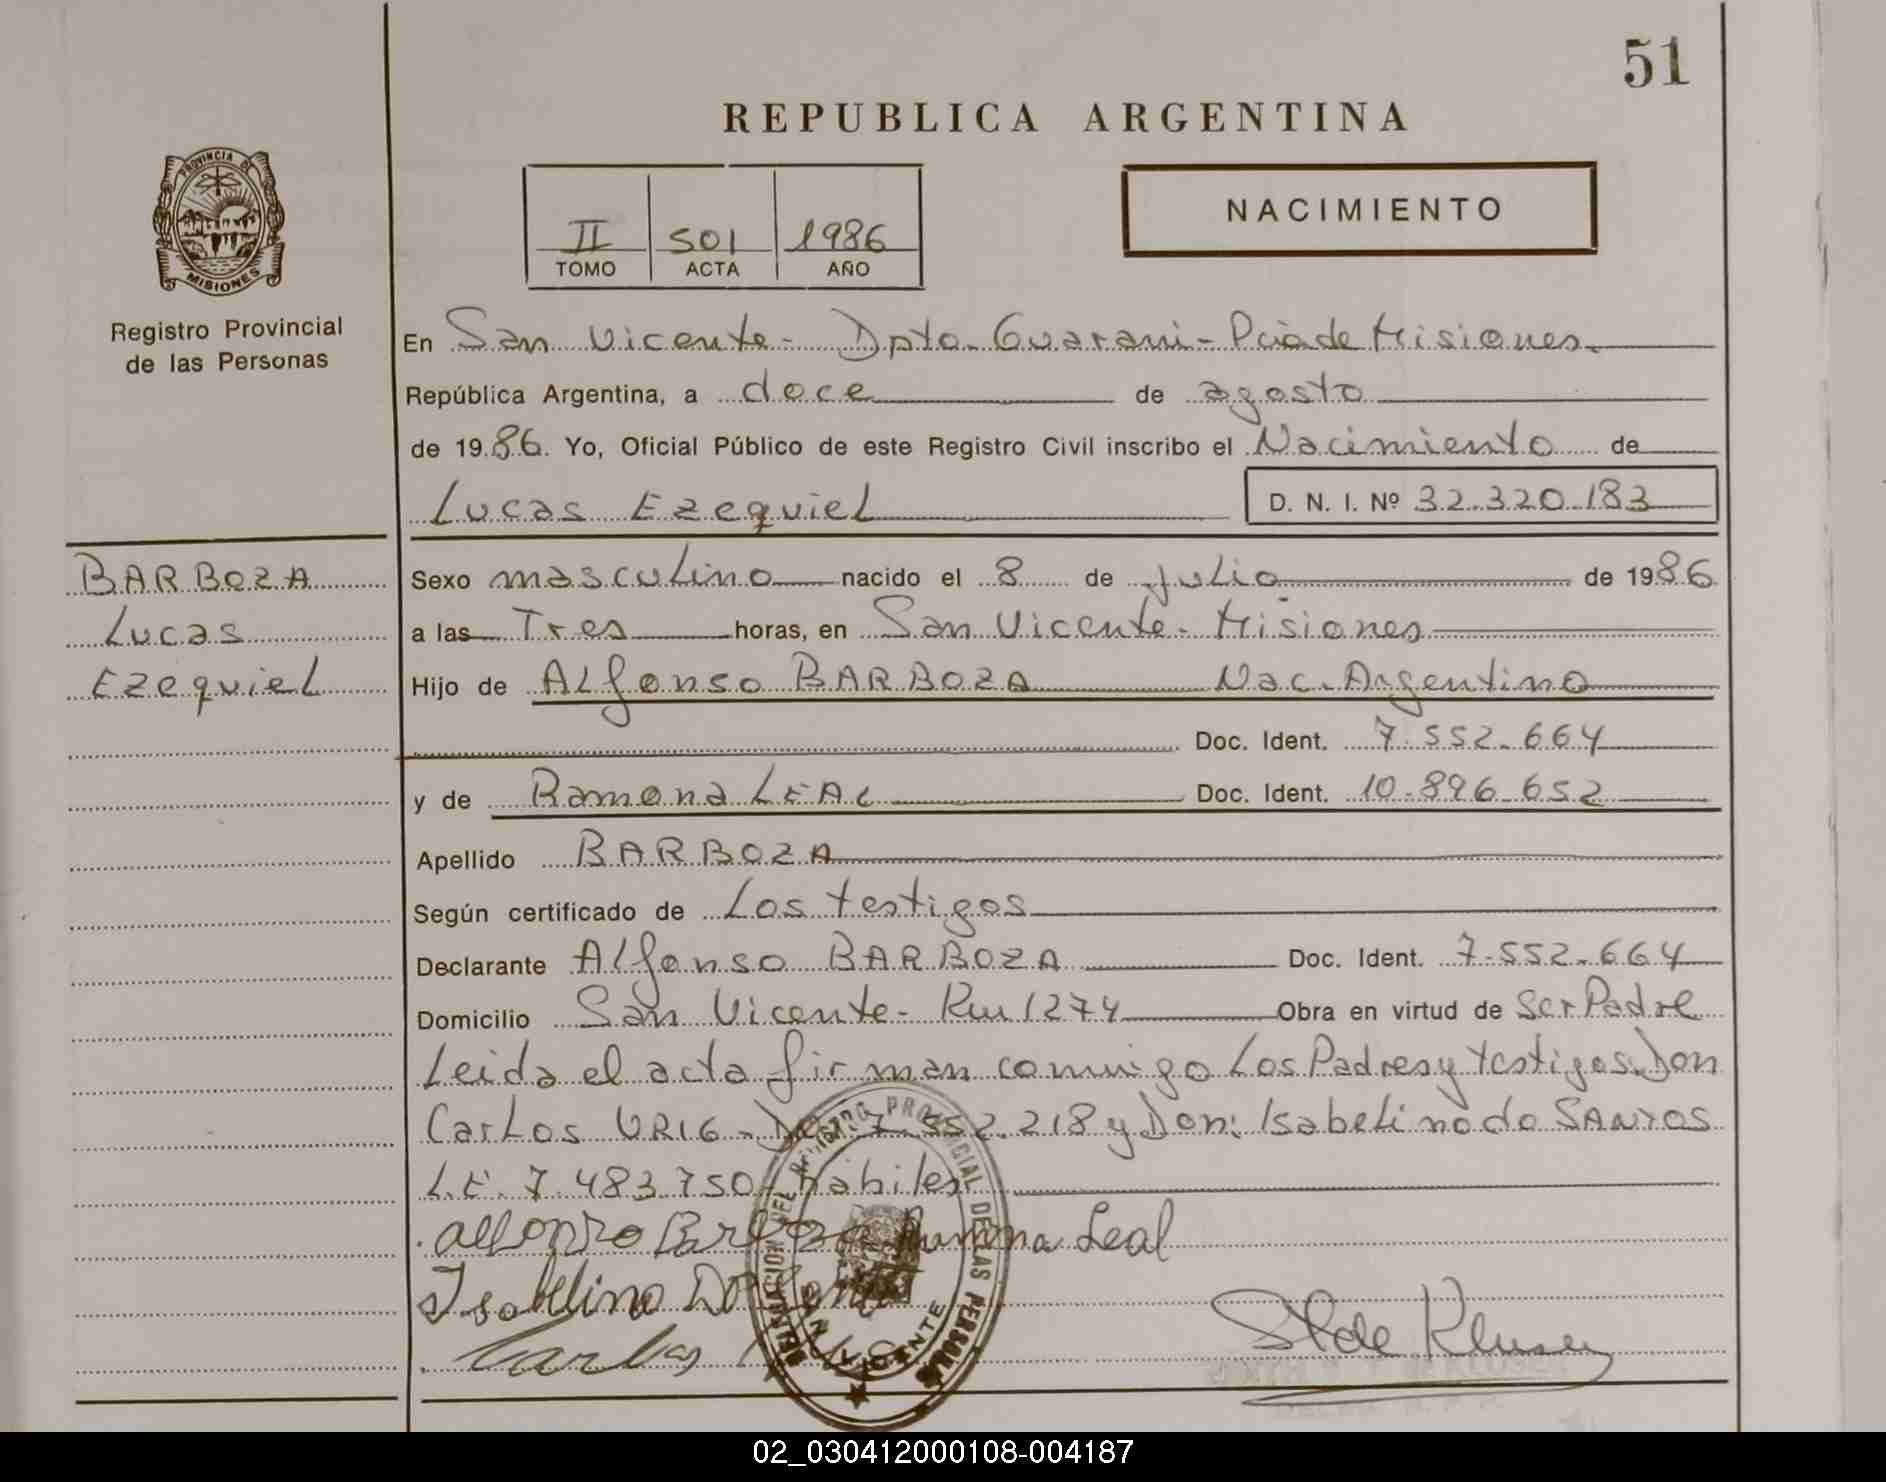 51
REPUBLICA ARGENTINA
PROVINCIA DE
MISIONES
Registro Provincial
de las Personas
II 501 1986
TOMO ACTA AÑO
NACIMIENTO
En San Vicente - Dpto. Guarani - Pcia de Misiones.
República Argentina, a doce de agosto
de 1986. Yo, Oficial Público de este Registro Civil inscribo el Nacimiento de
Lucas Ezequiel D. N. I. Nº 32.320.183
BARBOZA
Lucas
Ezequiel
Sexo masculino nacido el 8 de Julio de 1986
a las Tres horas, en San Vicente - Misiones
Hijo de Alfonso BARBOZA Nac. Argentino
Doc. Ident. 7.552.664
y de Ramona LEAL Doc. Ident. 10.896.652
Apellido BARBOZA
Según certificado de Los testigos
Declarante Alfonso BARBOZA Doc. Ident. 7.552.664
Domicilio San Vicente - Km 1274 Obra en virtud de Ser Padre
Leida el acta firman conmigo Los Padres y testigos. Don
Carlos URIG - 7.552.218 y Don: Isabelino do SANTOS
L.E. 7.483.750 habiles
Alfonso Barboza Ramona Leal
Isabelino Do
Carlos
DEL REGISTRO PROVINCIAL DE LAS PERSONAS
SAN VICENTE
02_030412000108-004187